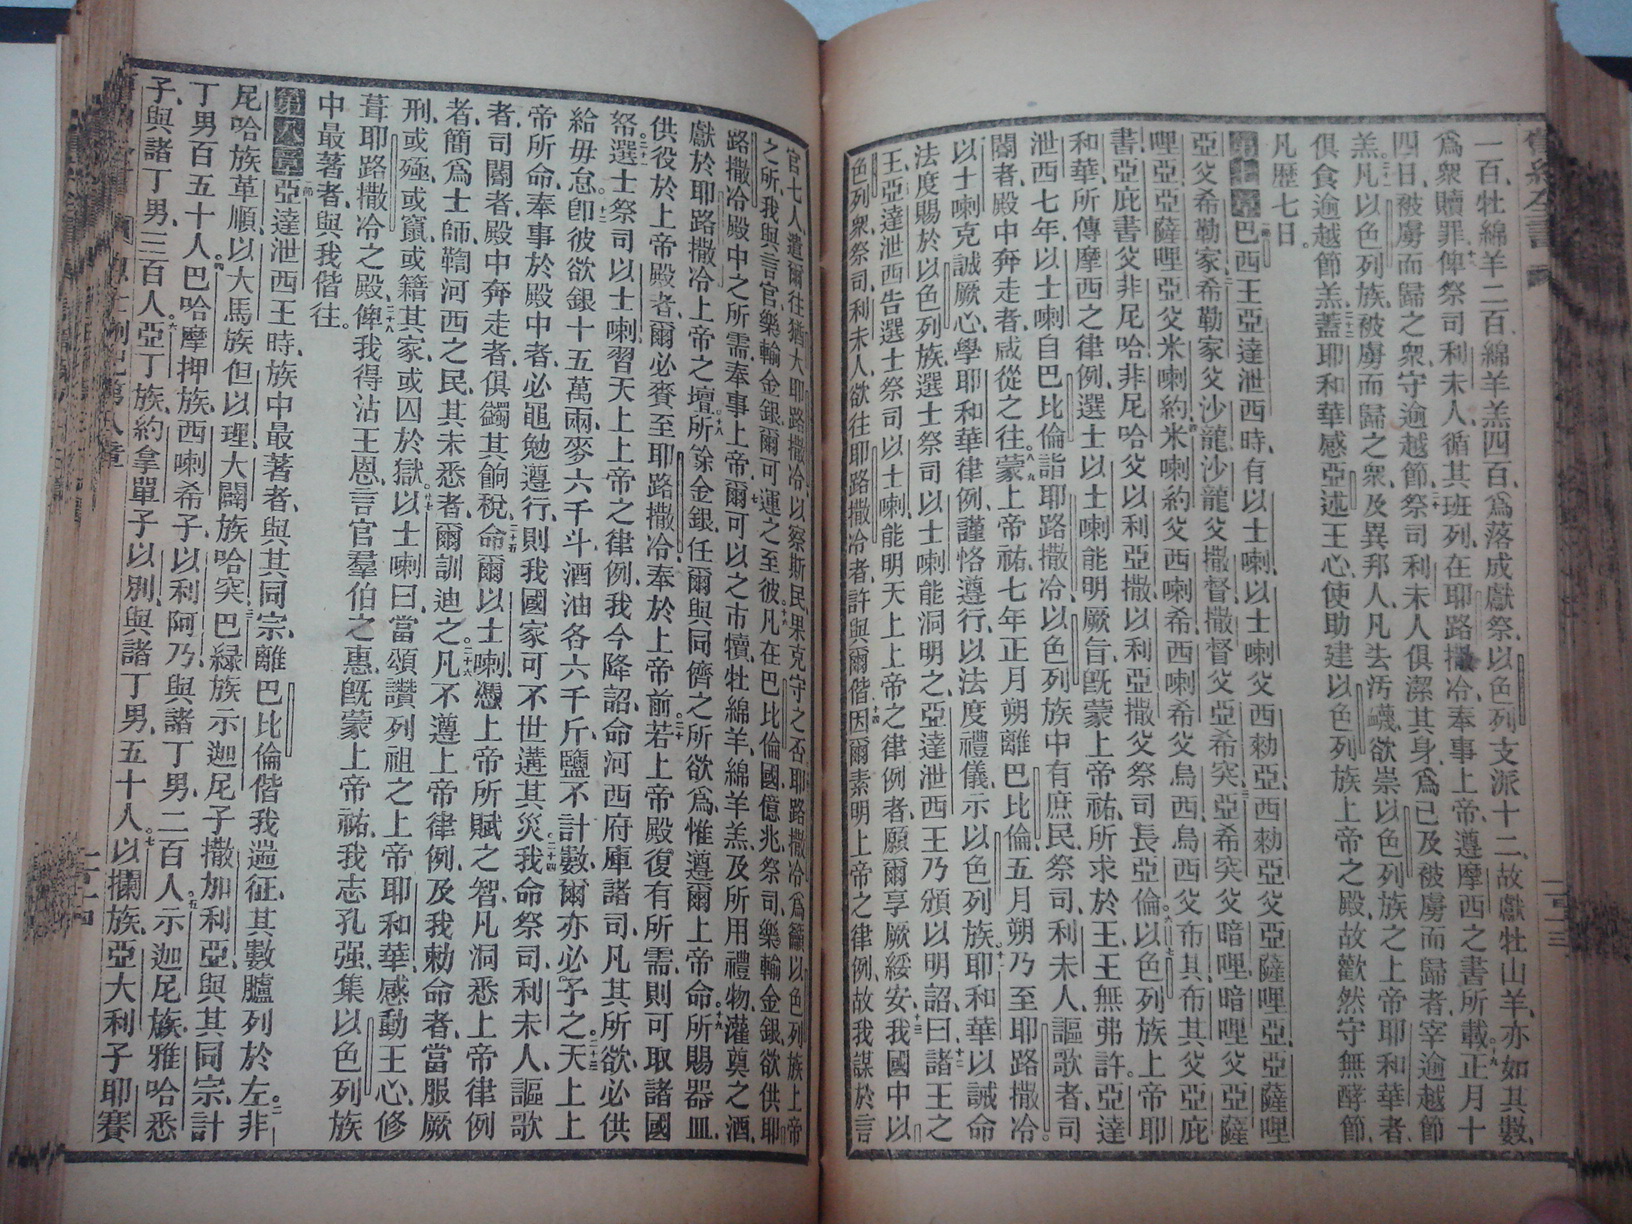 一百、牡綿羊二百、綿羊羔四百、爲落成獻祭、以色列支派十二、故獻牡山羊、亦如其數、
爲衆贖罪、十八俾祭司利未人、循其班列、在耶路撒冷、奉事上帝、遵摩西之書所載。十九正月十
四日、被虜而歸之衆、守逾越節、二十祭司利未人俱潔其身、爲己及被虜而歸者、宰逾越節
羔。二一凡以色列族、被虜而歸之衆、及異邦人、凡去汚衊、欲崇以色列族之上帝耶和華者、
俱食逾越節羔、二二蓋耶和華感亞述王心、使助建以色列族上帝之殿、故歡然守無酵節、
凡歷七日。
第七章 一節巴西王亞達泄西時、有以士喇、以士喇父西勅亞、西勅亞父亞薩哩亞、亞薩哩
亞父希勒家、二希勒家父沙龍、沙龍父撒督、撒督父亞希突、三亞希突父暗哩、暗哩父亞薩
哩亞、亞薩哩亞父米喇約、四米喇約父西喇希、西喇希父烏西、烏西父布其、五布其父亞庇
書、亞庇書父非尼哈、非尼哈父以利亞撒、以利亞撒父祭司長亞倫。六以色列族上帝耶
和華所傳摩西之律例、選士以士喇能明厥旨、旣蒙上帝祐、所求於王、王無弗許。七亞達
泄西七年、以士喇自巴比倫詣耶路撒冷、以色列族中有庶民、祭司、利未人、謳歌者、司
閽者、殿中奔走者、咸從之往、八九蒙上帝祐、七年正月朔離巴比倫、五月朔乃至耶路撒冷。
以士喇克誠厥心、學耶和華律例、謹恪遵行、以法度禮儀、示以色列族。十一耶和華以誡命
法度賜於以色列族、選士祭司以士喇能洞明之、亞達泄西王乃頒以明詔曰、十二諸王之
王、亞達泄西告選士祭司以士喇、能明天上上帝之律例者、願爾享厥綏安、十三我國中以
色列衆、祭司、利未人、欲往耶路撒冷者、許與爾偕、十四因爾素明上帝之律例、故我謀於言
官七人、遣爾往猶大耶路撒冷、以察斯民、果克守之否、十五耶路撒冷爲籲以色列族上帝
之所、我與言官、樂輸金銀、爾可運之至彼、十六凡在巴比倫國億兆祭司、樂輸金銀、欲供耶
路撒冷殿中之所需、奉事上帝、十七爾可以之市犢、牡綿羊、綿羊羔、及所用禮物、灌奠之酒、
獻於耶路撒冷上帝之壇、十八所餘金銀、任爾與同儕之所欲爲、惟遵爾上帝命、十九所賜器皿、
供役於上帝殿者、爾必賚至耶路撒冷、奉於上帝前、二十若上帝殿、復有所需、則可取諸國
帑。二一選士祭司以士喇、習天上上帝之律例、我今降詔命河西府庫諸司、凡其所欲、必供
給毋怠、二二卽彼欲銀十五萬兩、麥六千斗、酒油各六千斤、鹽不計數、爾亦必予之。二三天上上
帝所命、奉事於殿中者、必黽勉遵行、則我國家可不世遘其災、二四我命祭司、利未人、謳歌
者、司閽者、殿中奔走者、俱蠲其餉稅、二五命爾以士喇、憑上帝所賦之智、凡洞悉上帝律例
者、簡爲士師、鞫河西之民、其未悉者、爾訓迪之。二六凡不遵上帝律例、及我勅命者、當服厥
刑、或殛、或竄、或籍其家、或囚於獄。廿七以士喇曰、當頌讚列祖之上帝耶和華、感動王心、修
葺耶路撒冷之殿、二八俾我得沾王恩、言官羣伯之惠、旣蒙上帝祐、我志孔强、集以色列族
中最著者、與我偕往。
第八章 一節亞達泄西王時、族中最著者、與其同宗、離巴比倫、偕我遄征、其數臚列於左。二非
尼哈族革順、以大馬族但以理、大闢族哈突、三巴綠族示迦尼子撒加利亞、與其同宗、計
丁男百五十人。四巴哈摩押族、西喇希子以利阿乃、與諸丁男、二百人。五示迦尼族、雅哈悉
子、與諸丁男、三百人。六亞丁族、約拿單子以別、與諸丁男、五十人。七以攔族、亞大利子耶賽
以士喇記第八章
一百十四